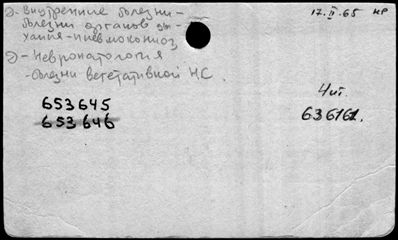 Э- внутренние болезни -
болезни органов ды-
хания - пневмокониоз
Э- Невропатология
- болезни вегетативной НС.
17.II.65 НР
653645
653646
4 чт.
636161.